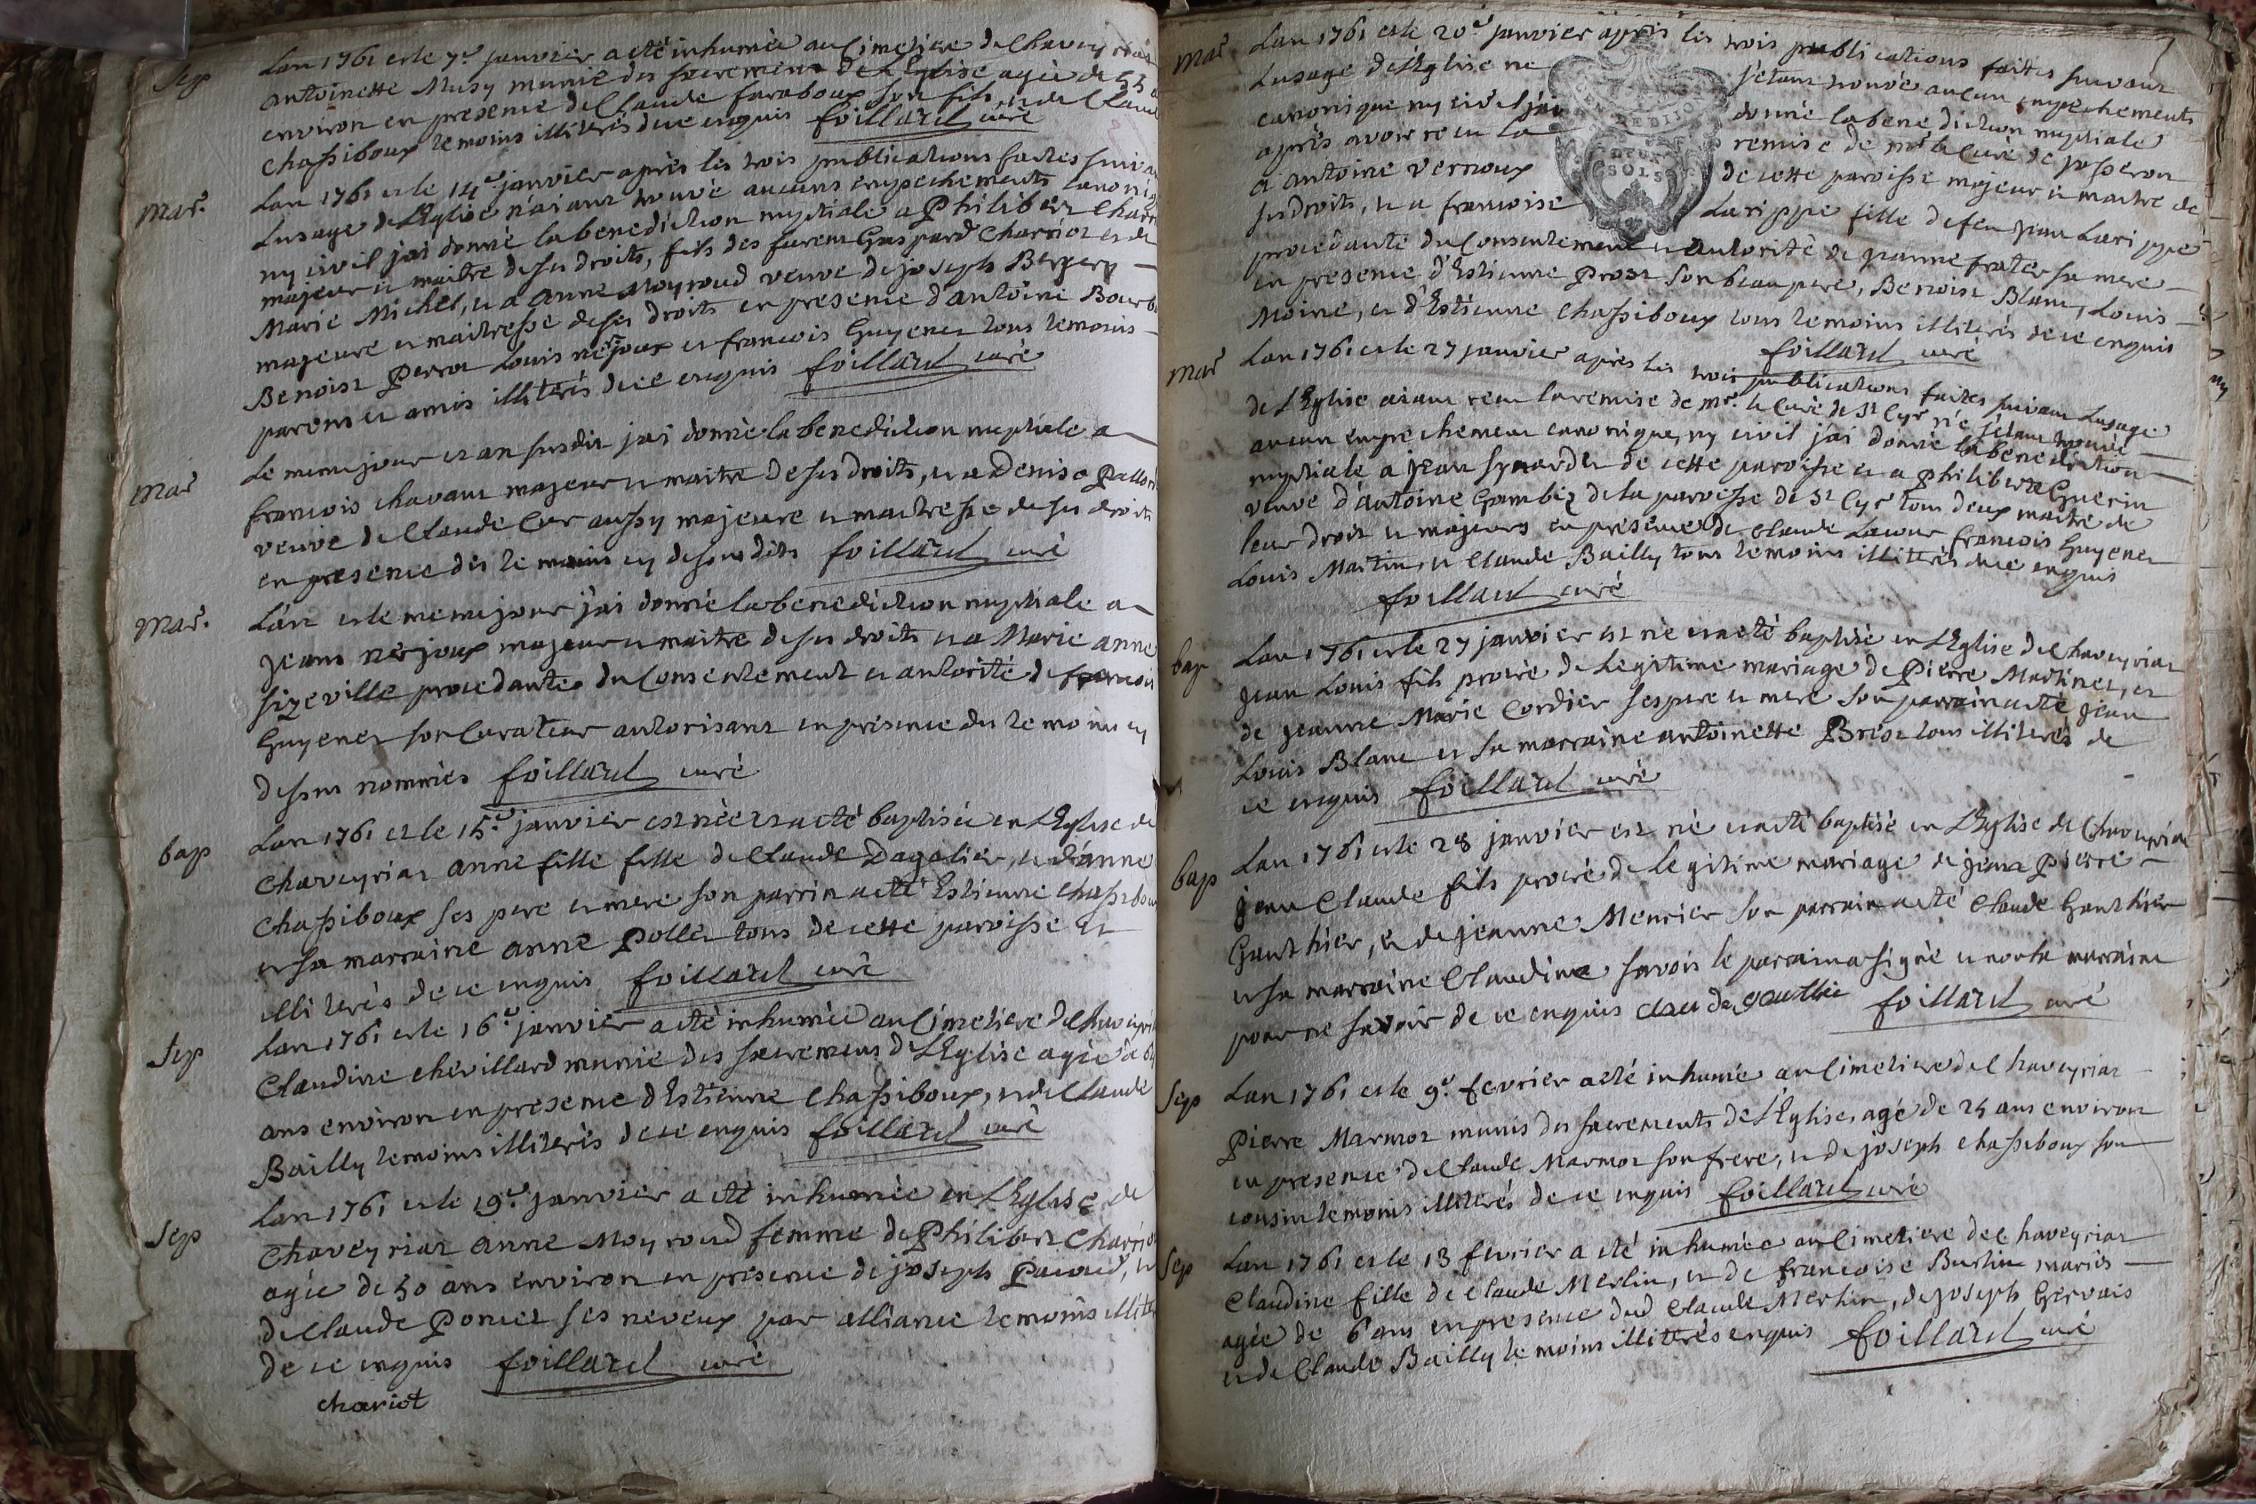 Sep
Lan 1761 et le 7e janvier a eté inhumée au Cimetiere de Chaveyriat
antoinette Musy munie des sacremens de L'Eglise agée de 55
environ en presence de Claude faraboux son fils, et de Claude
Chassiboux temoins illiterés de ce enquis foillard curé
Mar.
Lan 1761 et le 14e janvier après les trois publications faites suivant
Lusage de L'Eglise n'aiant trouvé aucuns empechements canoniq
ny civil j'ai donné la benediction nuptiale a Philibert Charriot
majeur et maitre de ses droits, fils des furent Gaspard Charriot et de
Marie Michel, et a Anne Moyroud veuve de joseph Bergery
majeure et maitresse de ses droits en presence d'antoine Bourb
Benoist Perrot Louis nérjoux et francois Guyenet tous temoins
parens et amis illiterés de ce enquis foillard curé
Mar
Le meme jour et an susdit j'ai donné la benediction nuptiale a
francois chavant majeur et maitre de ses droits, et a Denise Pallor
veuve de Claude Cur aussy majeure et maitresse de ses droits
en presence des temoins cy dessus dits foillard curé
Mar.
L'an et le meme jour j'ai donné la benediction nuptiale a
jean nérjoux majeur et maitre de ses droits et a Marie anne
sizeville procedante du Consentement et autorité de francois
Guyenet son Curateur autorisant en présence des temoins cy
dessus nommés foillard curé
bap
Lan 1761 et le 15e janvier est née et a eté baptisée en L'Eglise de
Chaveyriat anne fille fille de Claude Dagalier, et d'anne
Chassiboux ses pere et mere son parrin a eté Estienne Chassiboux
et sa marraine anne Pollet tous de cette paroisse et
illiterés de ce enquis foillard curé
Sep
Lan 1761 et le 16e janvier a eté inhumée au Cimetiere de Chaveyriat
Claudine chevillard munie des sacremens de L'Eglise agée de 60
ans environ en presence d'Estienne Chassiboux, et de Claude
Bailly temoins illiterés de ce enquis foillard curé
Sep
Lan 1761 et le 19e janvier a eté inhumée en L'Eglise de
Chaveyriat anne Moyroud femme de Philibert Charriot
agée de 50 ans environ en présence de joseph Pacoud, et
de Claude Poncet ses neveux par alliance temoins illite
de ce enquis foillard curé
chariot
Mar
Lan 1761 et le 20e janvier après les trois publications faites suivant
Lusage de L'Eglise ne s'etant trouvé aucun empechements
canonique ny civil j'ai donné la benediction nuptiale
après avoir recu la remise de mr le Curé de josseron
a antoine vernoux de cette paroisse majeur et maitre de
ses droits, et a francoise Larippe fille de feu jean Larippe
procedante du Consentement et autorité de jeanne frater sa mere
en presence d'Estienne Prost son beaupere, Benoist Blanc, Louis
Moine, et d'Estienne Chassiboux tous temoins illiterés de ce enquis
foillard curé
Mar
Lan 1761 et le 27 janvier après les trois publications faites suivant Lusage
de L'Eglise aiant recu la remise de mr le Curé de St Cyr n'e s'etant trouvé
aucun empechement canonique, ny civil j'ai donné la benediction
nuptiale a jean de cette paroisse et a Philiberte Guerin
veuve d'antoine Gambiz de la paroisse de St Cyr tous deux maitre de
leur droit et majeurs en presence de Claude Lacour francois Guyenet
Louis Martin, et Claude Bailly tous temoins illiterés de ce enquis
foillard curé
bap
Lan 1761 et le 27 janvier est né et a eté baptisé en L'Eglise de Chaveyriat
jean Louis fils procré de Legitime mariage de Pierre Martinet, et
de jeanne Marie Cordier ses pere et mere son parrain a eté jean
Louis Blanc et sa marraine antoinette Brest tous illiterés de
ce enquis foillard curé
bap
Lan 1761 et le 28 janvier est né et a eté baptisé en L'Eglise de Chaveyriat
jean Claude fils procré de Legitime mariage de jean Pierre
Gauthier, et de jeanne Meurier son parrain a eté Claude Gauthier
et sa marraine Claudine savoir le parrain a signé et non la marraine
pour ne savoir de ce enquis claude gauthie foillard curé
Sep
Lan 1761 et le 9e fevrier a eté inhumé au Cimetiere de Chaveyriat
Pierre Marmot munis des sacrements de L'Eglise agé de 25 ans environ
en presence de Claude Marmot son frere, et de joseph chassiboux son
cousin temoins illiterés de ce enquis foillard curé
Sep
Lan 1761 et le 13 fevrier a eté inhumée au Cimetiere de Chaveyriat
Claudine fille de Claude Merlin, et de francoise Burlin mariés
agée de 6 ans en presence dud Claude Merlin, de joseph Gervais
et de Claude Bailly temoins illiterés enquis foillard curé